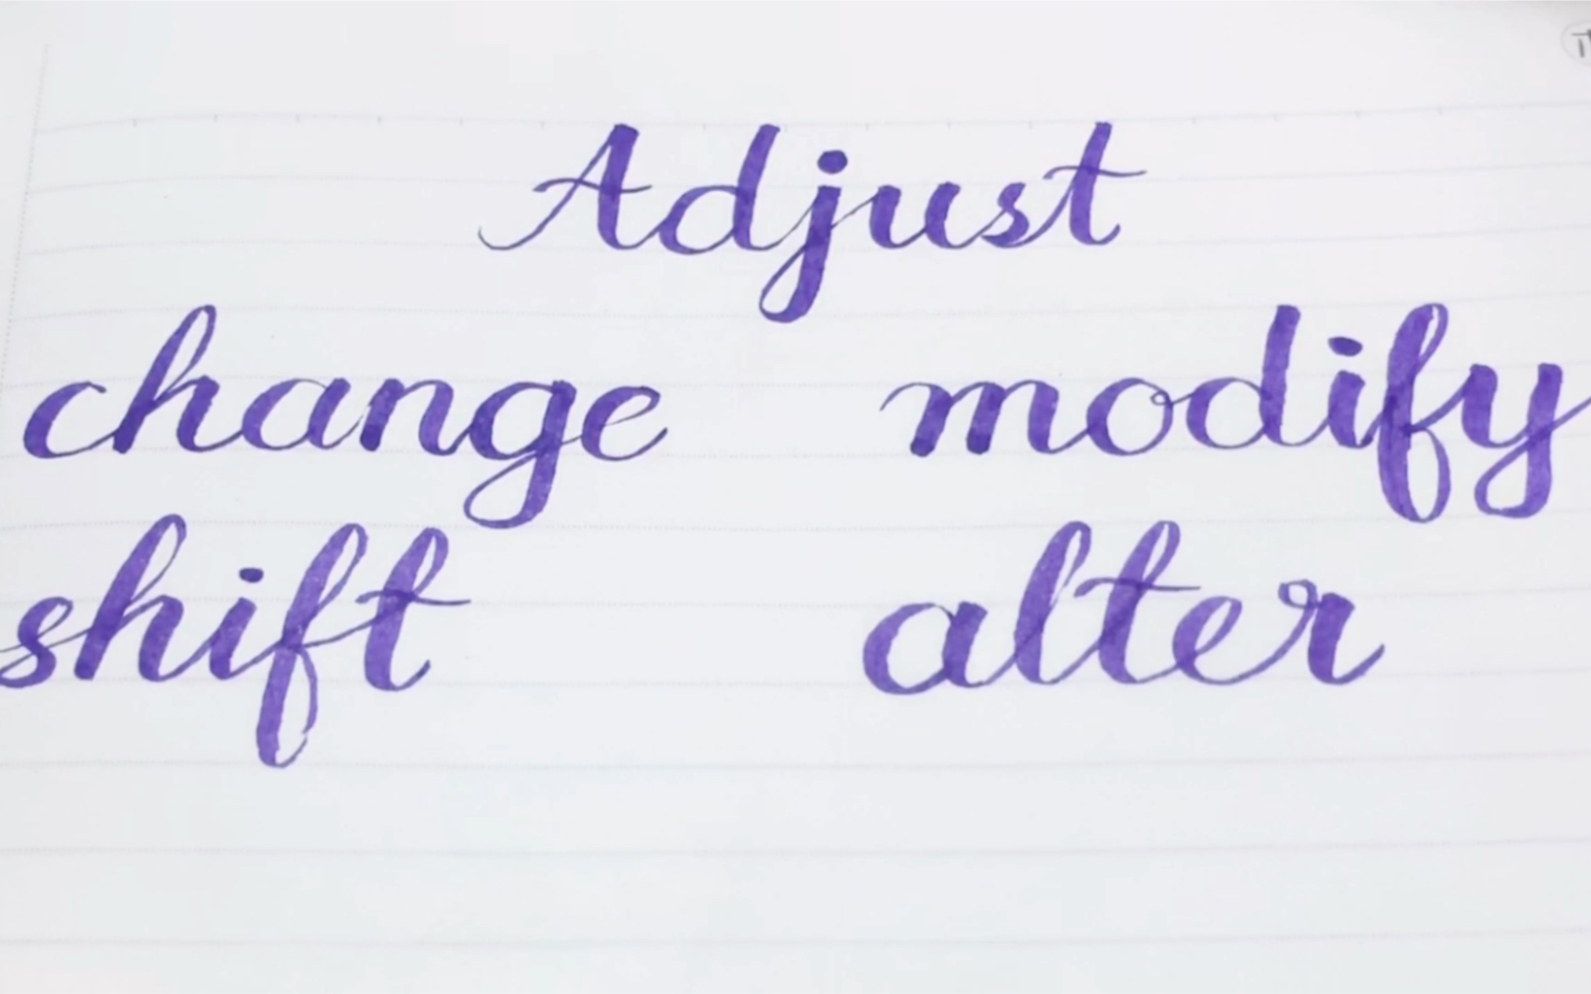 Adjust
change modify
shift alter